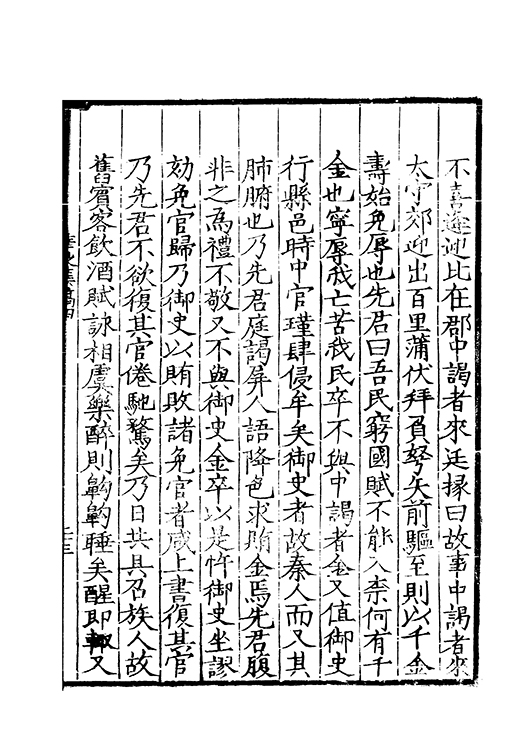 不喜逢迎比在郡中謁者來廷掾曰故事中謁者來
太守郊迎出百里蒲伏拜負弩矢前驅至則以千金
壽始免辱也先君曰吾民窮國賦不能入柰何有千
金也寧辱我亡苦我民卒不與中謁者金又值御史
行縣邑時中官瑾肆侵牟矣御史者故秦人而又其
肺腑也乃先君庭謁屏人語降色求賄金焉先君腹
非之為禮不敬又不與御史金卒以是忤御史坐謬
劾免官歸乃御史以賄敗諸免官者咸上書復其官
乃先君不欲復其官倦馳騖矣乃日共具召族人故
舊賓客飲酒賦詠相虞樂醉則齁齁睡矣醒即輙又